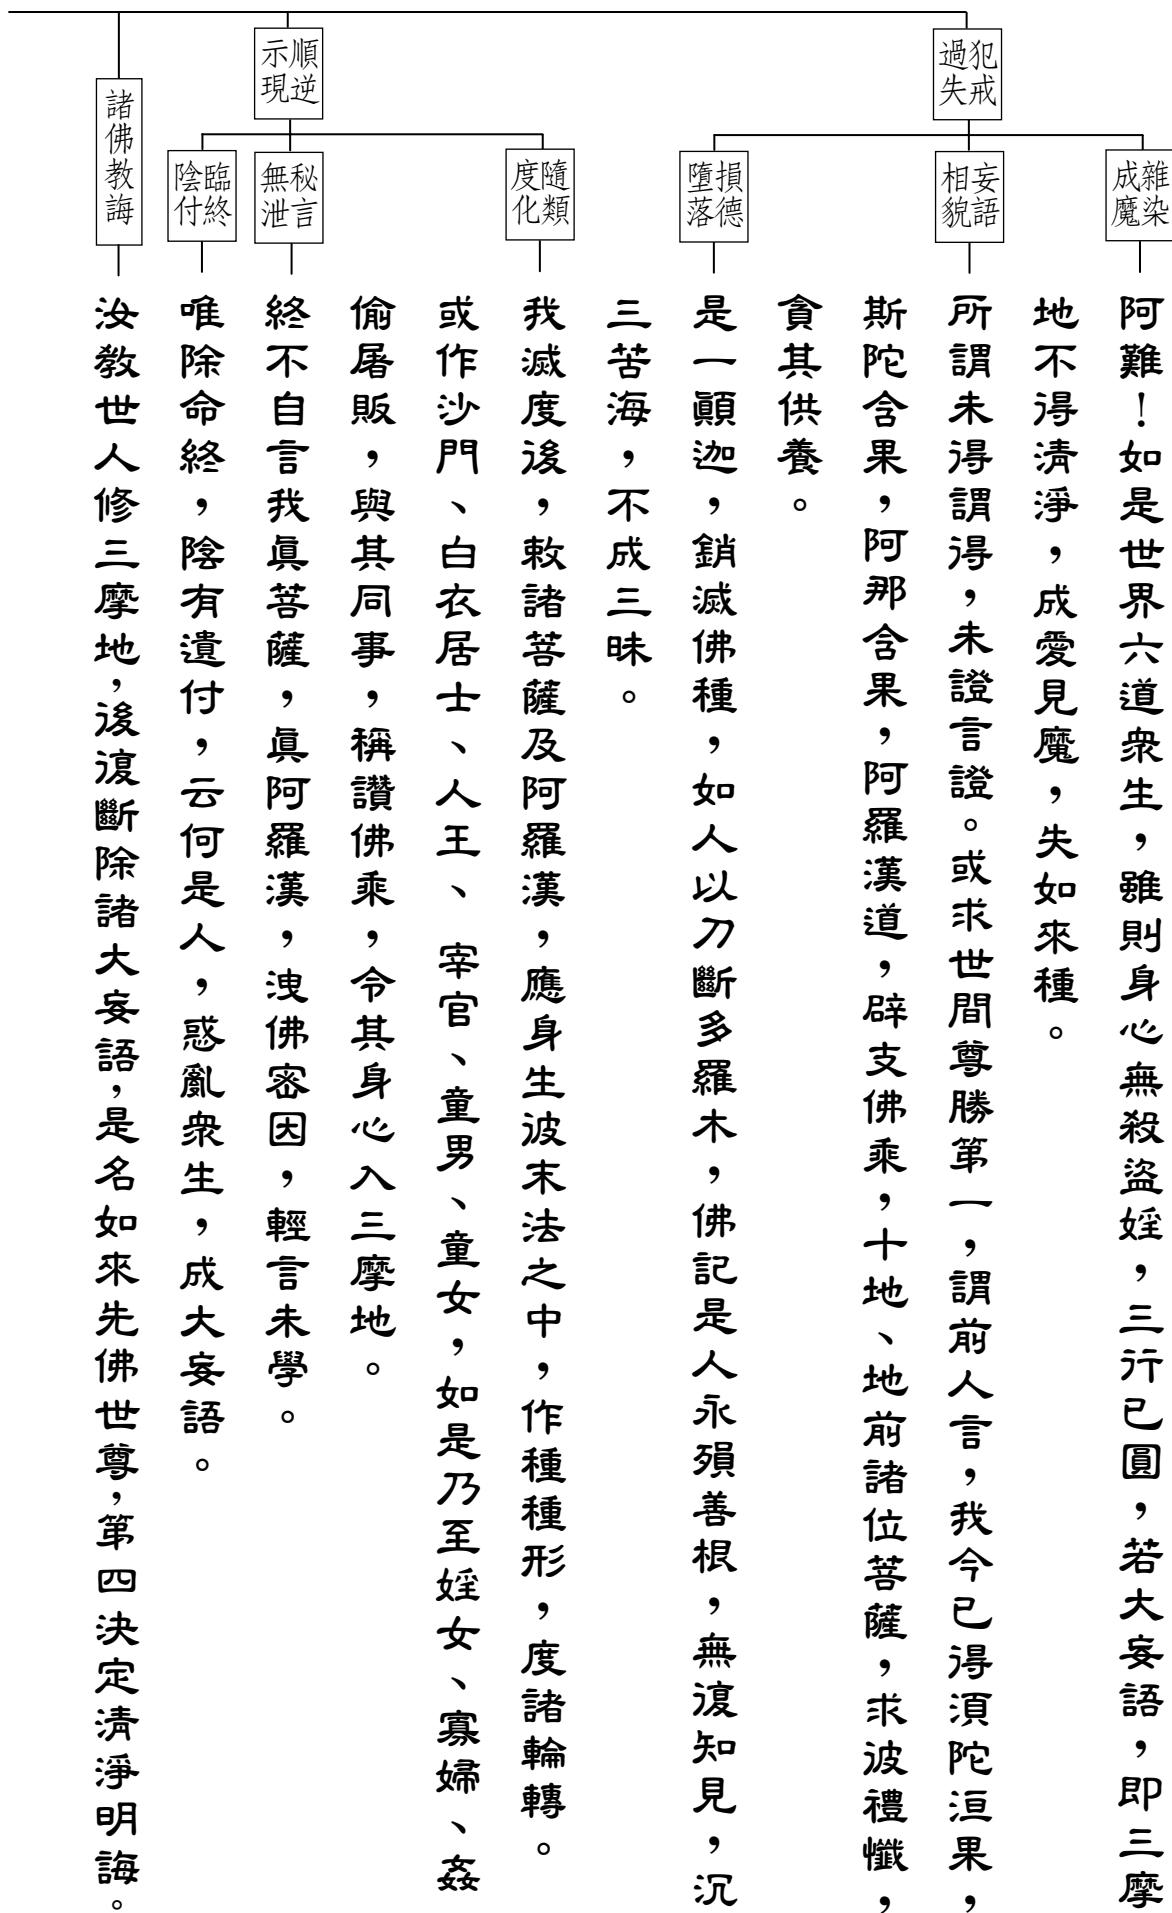 犯戒過失
雜染成魔
阿難！如是世界六道眾生，雖則身心無殺盜婬，三行已圓，若大妄語，即三摩
地不得清淨，成愛見魔，失如來種。
妄語相貌
所謂未得謂得，未證言證。或求世間尊勝第一，謂前人言，我今已得須陀洹果，
斯陀含果，阿那含果，阿羅漢道，辟支佛乘，十地、地前諸位菩薩，求彼禮懺，
貪其供養。
損德墮落
是一顛迦，銷滅佛種，如人以刀斷多羅木，佛記是人永殞善根，無復知見，沉
三苦海，不成三昧。
順逆示現
隨類度化
我滅度後，敕諸菩薩及阿羅漢，應身生彼末法之中，作種種形，度諸輪轉。
或作沙門、白衣居士、人王、宰官、童男、童女，如是乃至婬女、寡婦、姦
偷屠販，與其同事，稱讚佛乘，令其身心入三摩地。
秘言無泄
終不自言我真菩薩，真阿羅漢，洩佛密因，輕言未學。
臨終陰付
唯除命終，陰有遺付，云何是人，惑亂眾生，成大妄語。
諸佛教誨
汝教世人修三摩地，後復斷除諸大妄語，是名如來先佛世尊，第四決定清淨明誨。